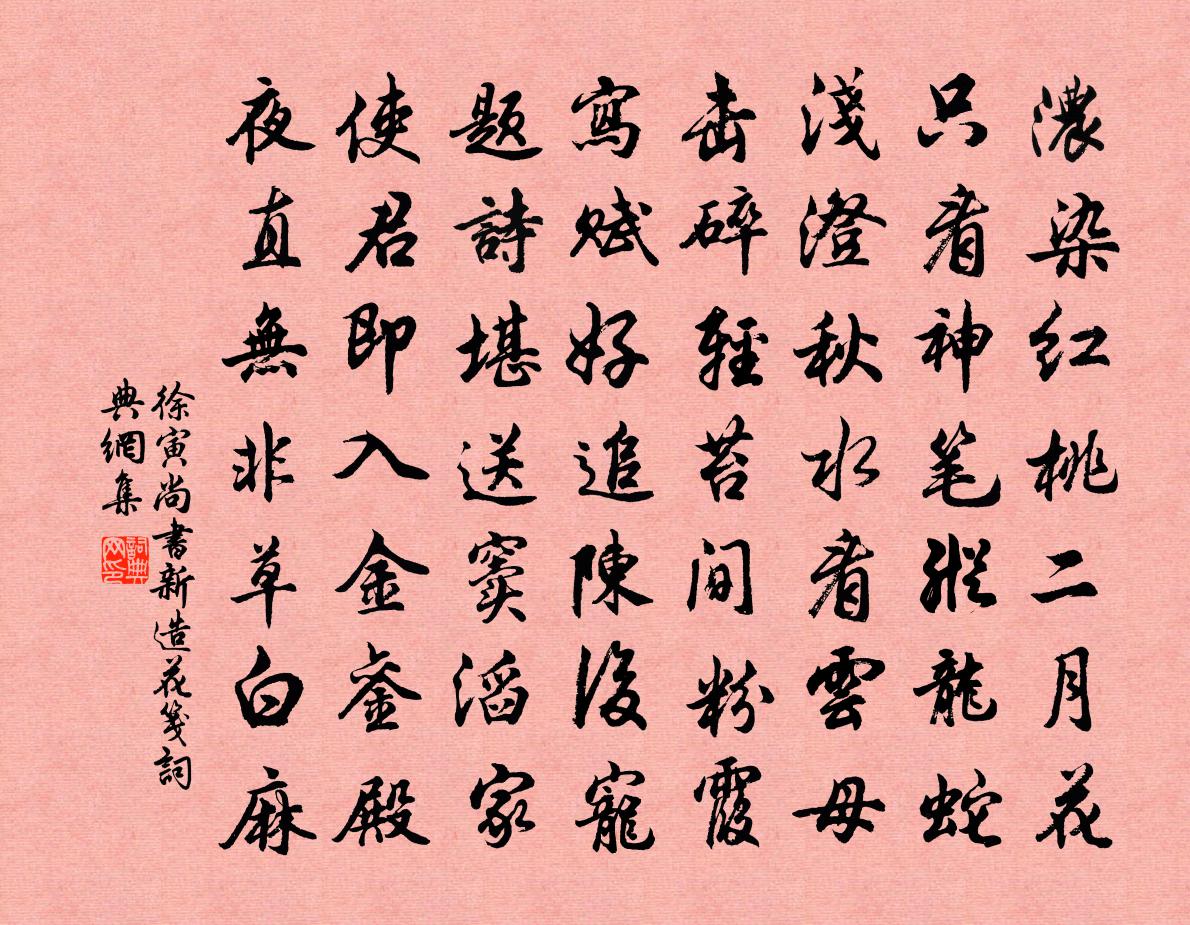 濃染红桃二月花
只看神笔縱龍蛇
淺澄秋水看雲母
击碎輕苔間粉霞
寫賦好追陳後寵
題詩堪送竇滔家
使君即入金銮殿
夜直無非草白麻
徐寅尚書新造花箋詞
典網集
詞典
网印